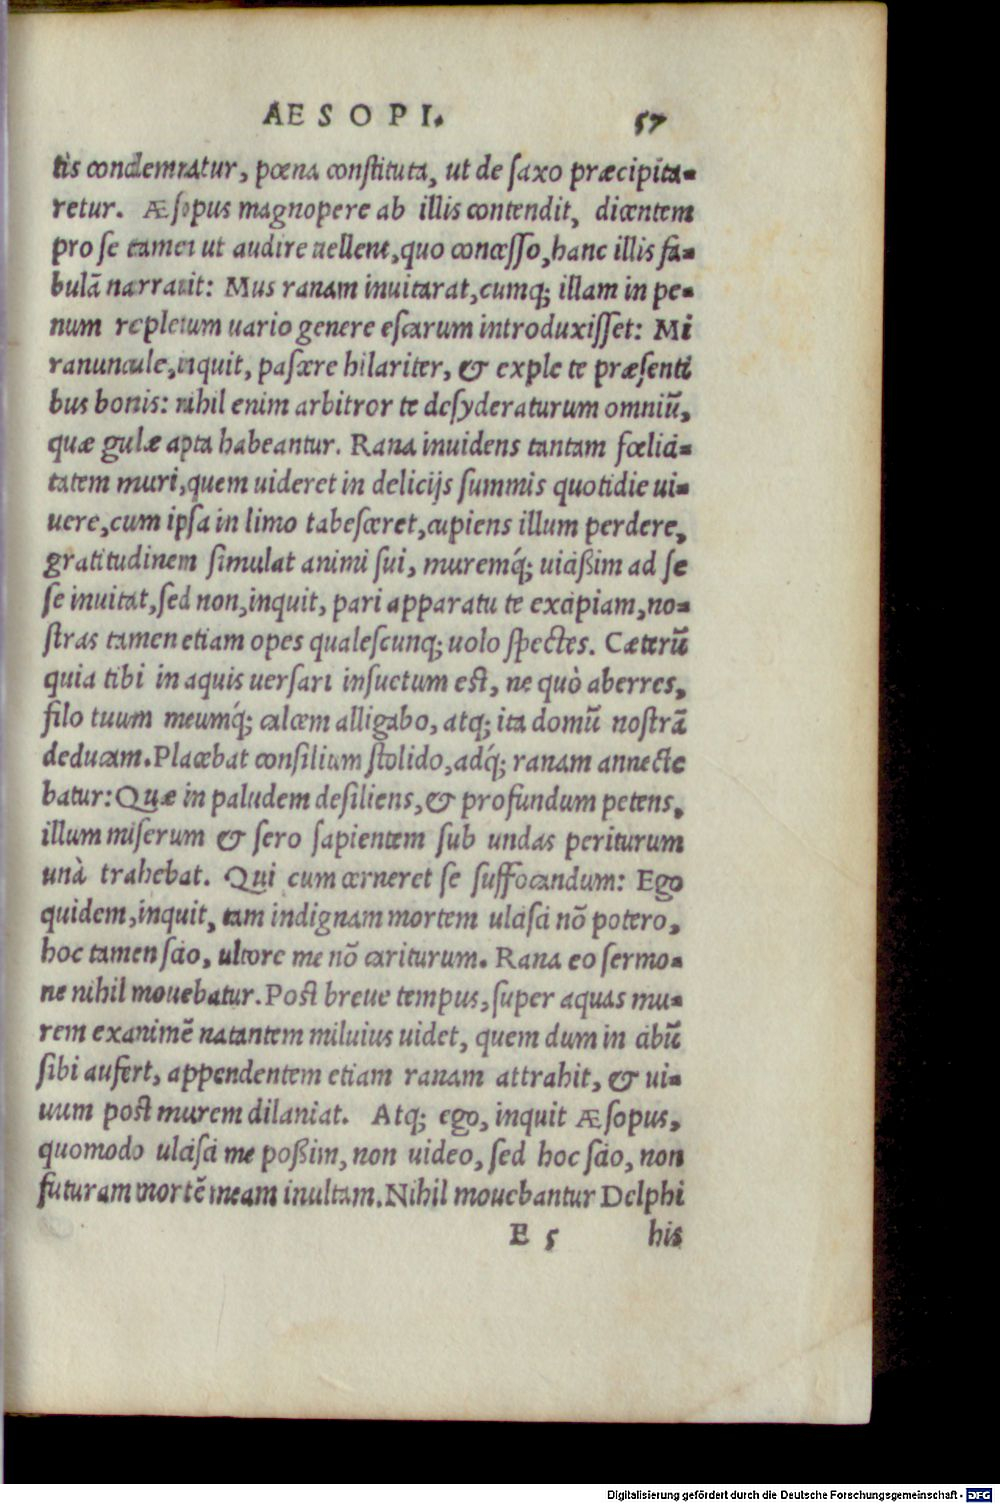 AESOPI. 57
tis condemnatur, pœna constituta, ut de saxo præcipita-
retur. Æsopus magnopere ab illis contendit, dicentem
pro se tamen ut audire uellent, quo concesso, hanc illis fa-
bulā narrauit: Mus ranam inuitarat, cumq; illam in pe-
num repletum uario genere escarum introduxisset: Mi
ranuncule, inquit, pascere hilariter, & exple te præsenti
bus bonis: nihil enim arbitror te desyderaturum omniū,
quæ gulæ apta habeantur. Rana inuidens tantam fœlici-
tatem muri, quem uideret in delicijs summis quotidie ui-
uere, cum ipsa in limo tabesceret, cupiens illum perdere,
gratitudinem simulat animi sui, muremq́; uicißim ad se
se inuitat, sed non, inquit, pari apparatu te excipiam, no-
stras tamen etiam opes qualescunq; uolo spectes. Cæterū
quia tibi in aquis uersari insuetum est, ne quò aberres,
filo tuum meumq́; calcem alligabo, atq; ita domū nostrā
deducam. Placebat consilium stolido, adq́; ranam annecte
batur: Quæ in paludem desiliens, & profundum petens,
illum miserum & sero sapientem sub undas periturum
unà trahebat. Qui cum cerneret se suffocandum: Ego
quidem, inquit, tam indignam mortem ulcisci nō potero,
hoc tamen scio, ultore me nō cariturum. Rana eo sermo-
ne nihil mouebatur. Post breue tempus, super aquas mu-
rem exanimē natantem miluius uidet, quem dum in cibū
sibi aufert, appendentem etiam ranam attrahit, & ui-
uum post murem dilaniat. Atq; ego, inquit Æsopus,
quomodo ulcisci me poßim, non uideo, sed hoc scio, non
futuram mortē meam inultam. Nihil mouebantur Delphi
E 5 his
Digitalisierung gefördert durch die Deutsche Forschungsgemeinschaft - DFG